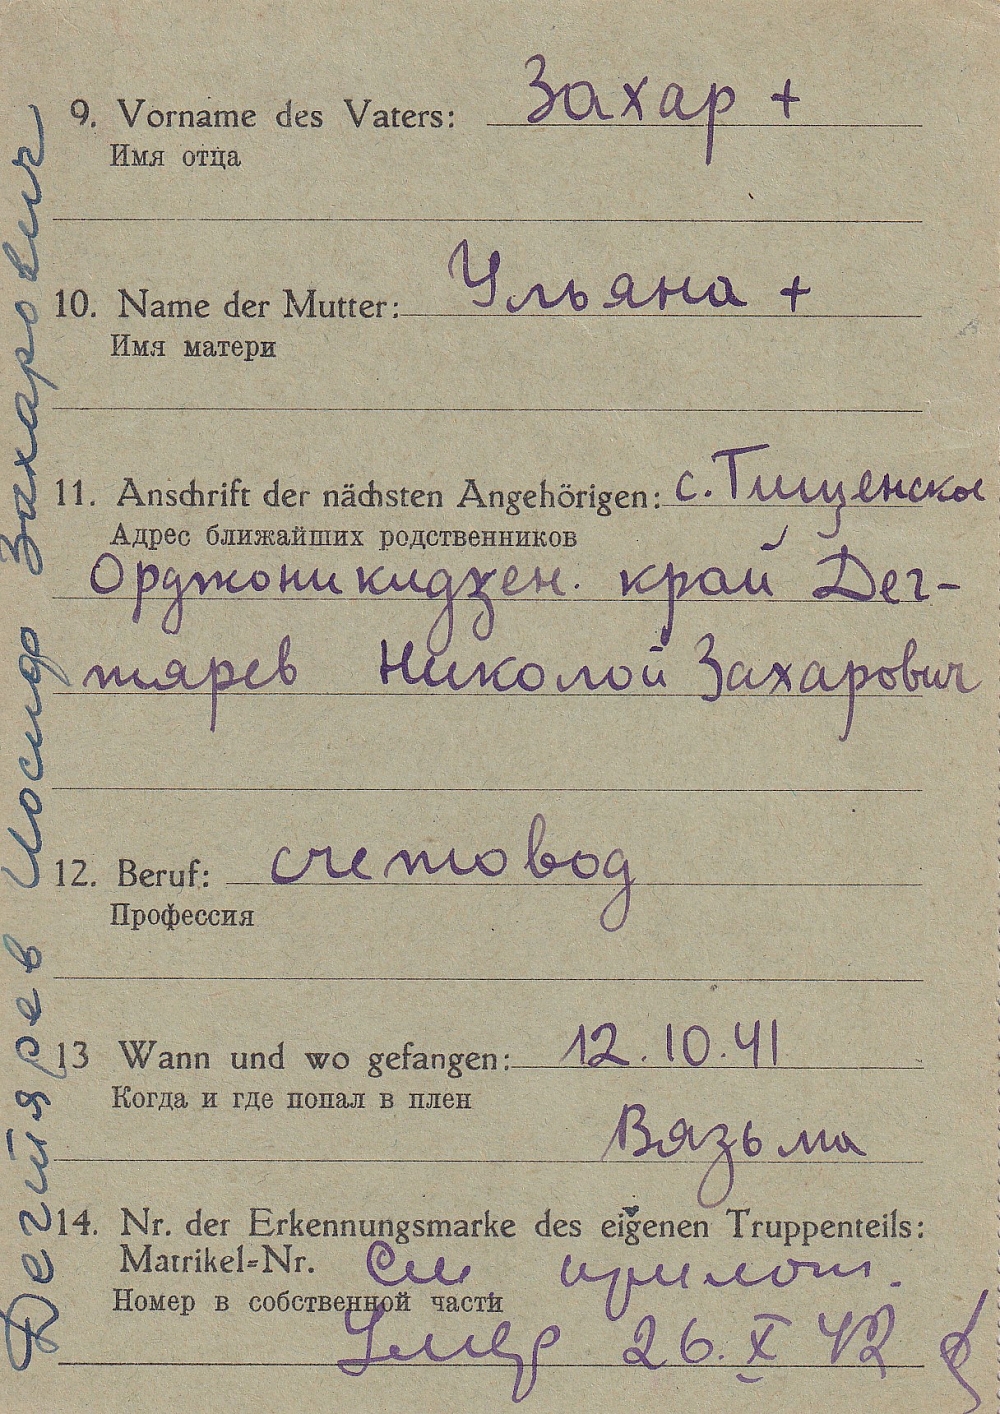 9. Vorname des Vaters: Захар +
Имя отца
10. Name der Mutter: Ульяна +
Имя матери
11. Anschrift der nächsten Angehörigen: с. Тищенское
Адрес ближайших родственников
Орджоникидзен. край Дег-
тярев Николой Захарович
12. Beruf: счетовод
Профессия
13 Wann und wo gefangen: 12.10.41
Когда и где попал в плен
Вязьма
14. Nr. der Erkennungsmarke des eigenen Truppenteils:
Matrikel-Nr. См
Номер в собственной части
Умер 26. X 42
Дегтярев Иосиф Захарович